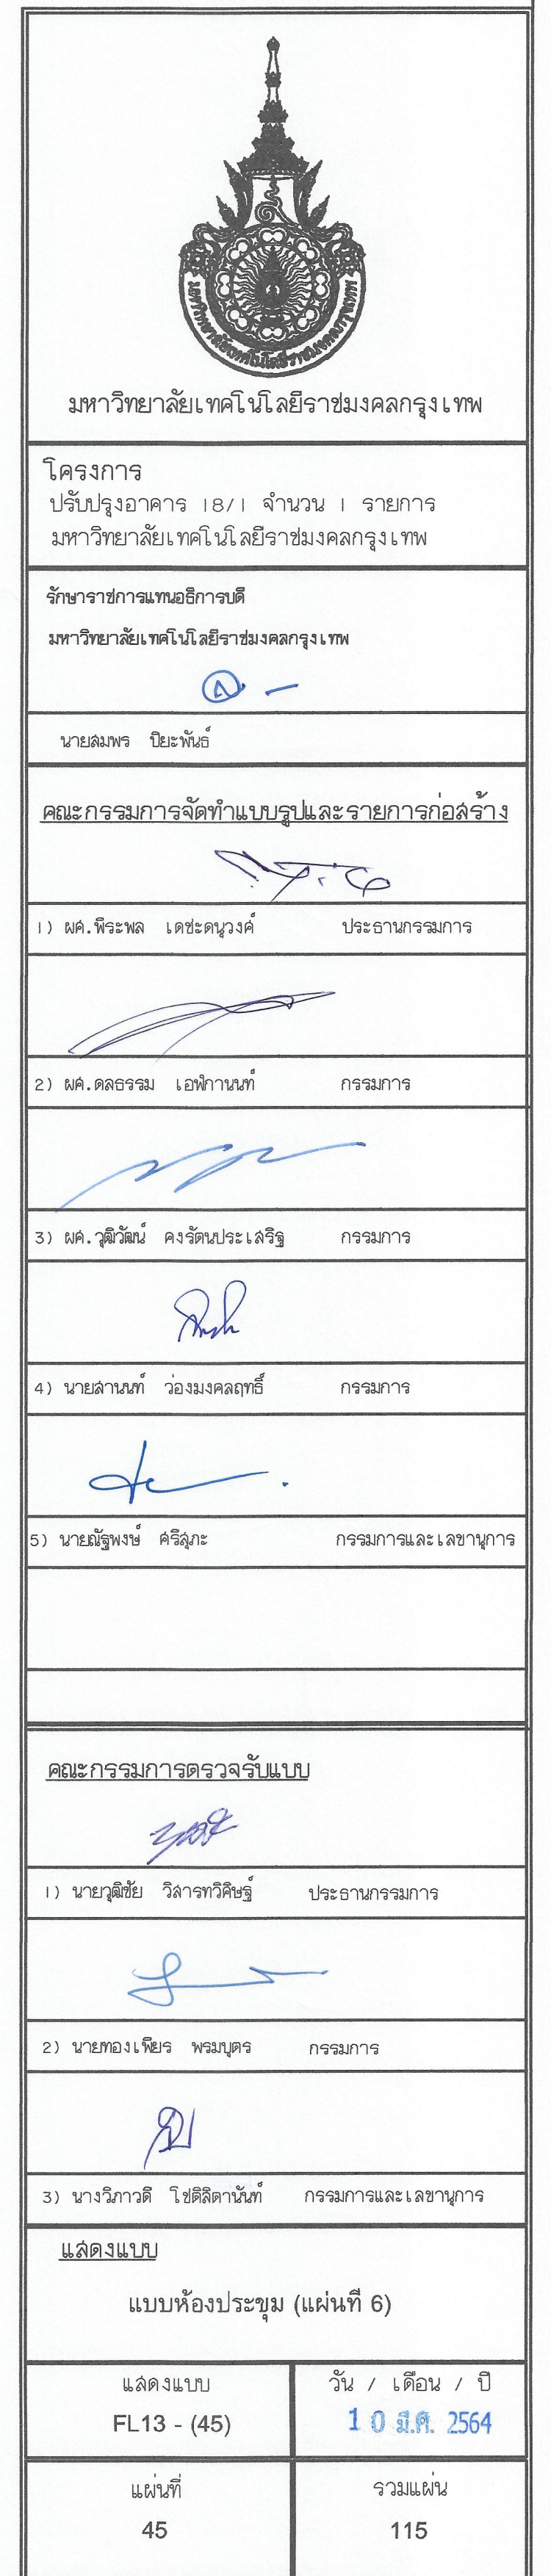 มหาวิทยาลัยเทคโนโลยีราชมงคลกรุงเทพ
มหาวิทยาลัยเทคโนโลยีราชมงคลกรุงเทพ
โครงการ
ปรับปรุงอาคาร 18/1 จำนวน 1 รายการ
มหาวิทยาลัยเทคโนโลยีราชมงคลกรุงเทพ
รักษาราชการแทนอธิการบดี
มหาวิทยาลัยเทคโนโลยีราชมงคลกรุงเทพ
นายสมพร ปิยะพันธ์
คณะกรรมการจัดทำแบบรูปและรายการก่อสร้าง
1) ผศ.พีระพล เดชะดนูวงค์ ประธานกรรมการ
2) ผศ.ดลธรรม เอฬกานนท์ กรรมการ
3) ผศ.วุฒิวัฒน์ คงรัตนประเสริฐ กรรมการ
4) นายสานนท์ ว่องมงคลฤทธิ์ กรรมการ
5) นายณัฐพงษ์ ศรีสุภะ กรรมการและเลขานุการ
คณะกรรมการตรวจรับแบบ
1) นายวุฒิชัย วิสารทวิศิษฐ์ ประธานกรรมการ
2) นายทองเพียร พรมบุตร กรรมการ
3) นางวิภาวดี โชติลิตานันท์ กรรมการและเลขานุการ
แสดงแบบ
แบบห้องประขุม (แผ่นที่ 6)
แสดงแบบ วัน / เดือน / ปี
FL13 - (45) 10 มี.ค. 2564
แผ่นที่ รวมแผ่น
45 115